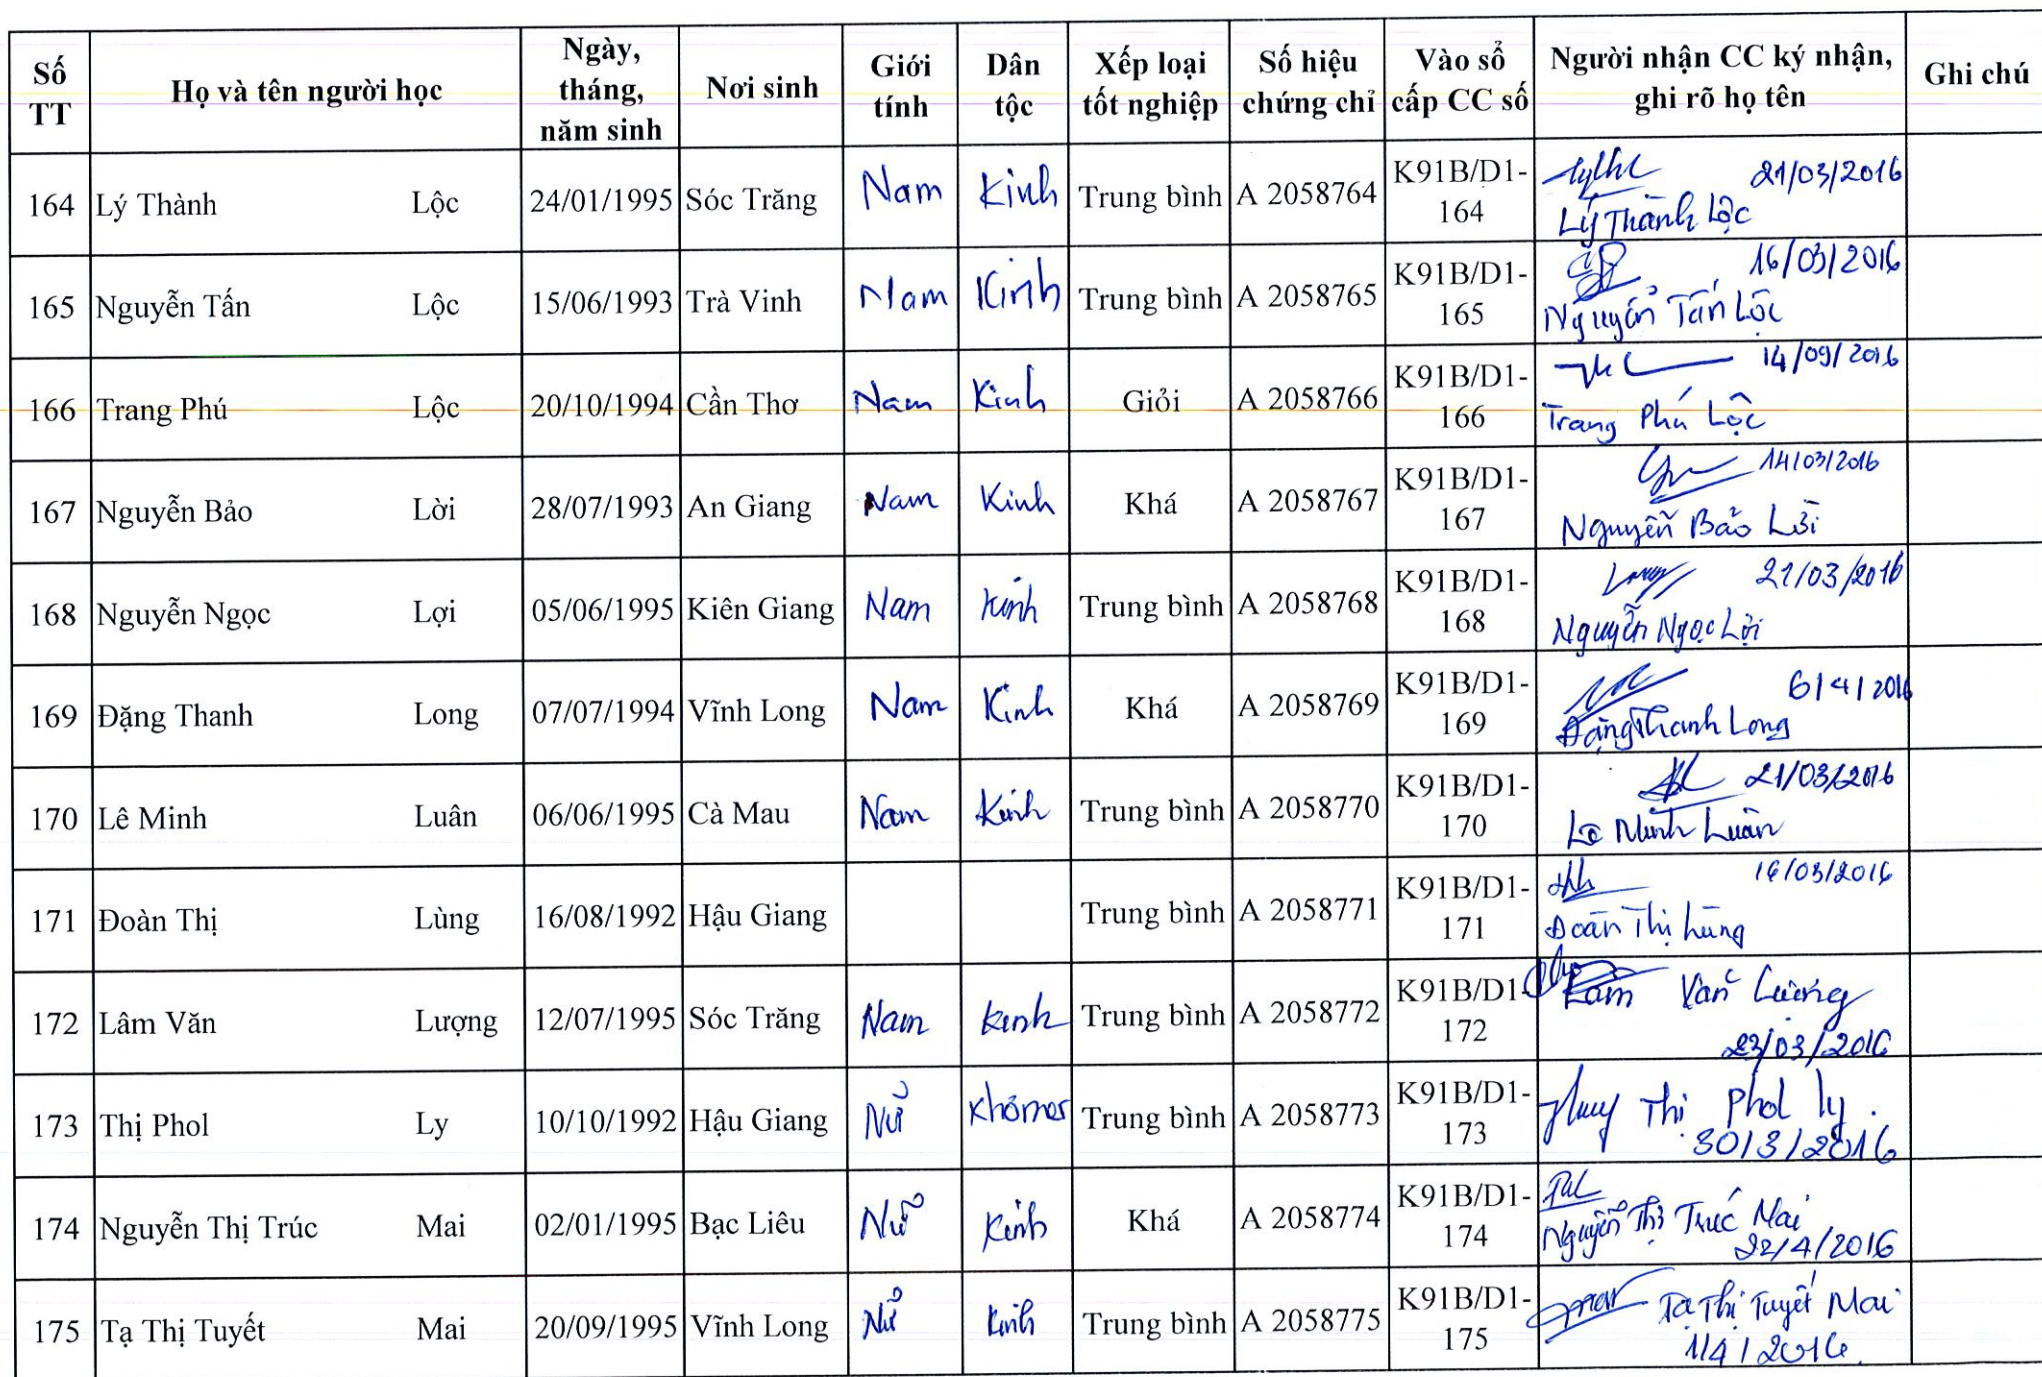 Số TT Họ và tên người học Ngày, tháng, năm sinh Nơi sinh Giới tính Dân tộc Xếp loại tốt nghiệp Số hiệu chứng chỉ Vào sổ cấp CC số Người nhận CC ký nhận, ghi rõ họ tên Ghi chú
164 Lý Thành Lộc 24/01/1995 Sóc Trăng Nam Kinh Trung bình A 2058764 K91B/D1-164 21/03/2016
Lý Thành Lộc
165 Nguyễn Tấn Lộc 15/06/1993 Trà Vinh Nam Kinh Trung bình A 2058765 K91B/D1-165 16/03/2016
Nguyễn Tấn Lộc
166 Trang Phú Lộc 20/10/1994 Cần Thơ Nam Kinh Giỏi A 2058766 K91B/D1-166
Trang Phú Lộc
167 Nguyễn Bảo Lời 28/07/1993 An Giang Nam Kinh Khá A 2058767 K91B/D1-167 14/03/2016
Nguyễn Bảo Lời
168 Nguyễn Ngọc Lợi 05/06/1995 Kiên Giang Nam Kinh Trung bình A 2058768 K91B/D1-168 21/03/2016
Nguyễn Ngọc Lợi
169 Đặng Thanh Long 07/07/1994 Vĩnh Long Nam Kinh Khá A 2058769 K91B/D1-169 6/4/2016
Đặng Thanh Long
170 Lê Minh Luân 06/06/1995 Cà Mau Nam Kinh Trung bình A 2058770 K91B/D1-170 21/03/2016
Lê Minh Luân
171 Đoàn Thị Lùng 16/08/1992 Hậu Giang Trung bình A 2058771 K91B/D1-171
Đoàn Thị Lùng
172 Lâm Văn Lượng 12/07/1995 Sóc Trăng Nam Kinh Trung bình A 2058772 K91B/D1-172 Lâm Văn Lượng
23/03/2016
173 Thị Phol Ly 10/10/1992 Hậu Giang Nữ Khơmer Trung bình A 2058773 K91B/D1-173 Thị Phol Ly
30/3/2016
174 Nguyễn Thị Trúc Mai 02/01/1995 Bạc Liêu Nữ Kinh Khá A 2058774 K91B/D1-174
Nguyễn Thị Trúc Mai
22/4/2016
175 Tạ Thị Tuyết Mai 20/09/1995 Vĩnh Long Nữ Kinh Trung bình A 2058775 K91B/D1-175 Tạ Thị Tuyết Mai
1/4/2016